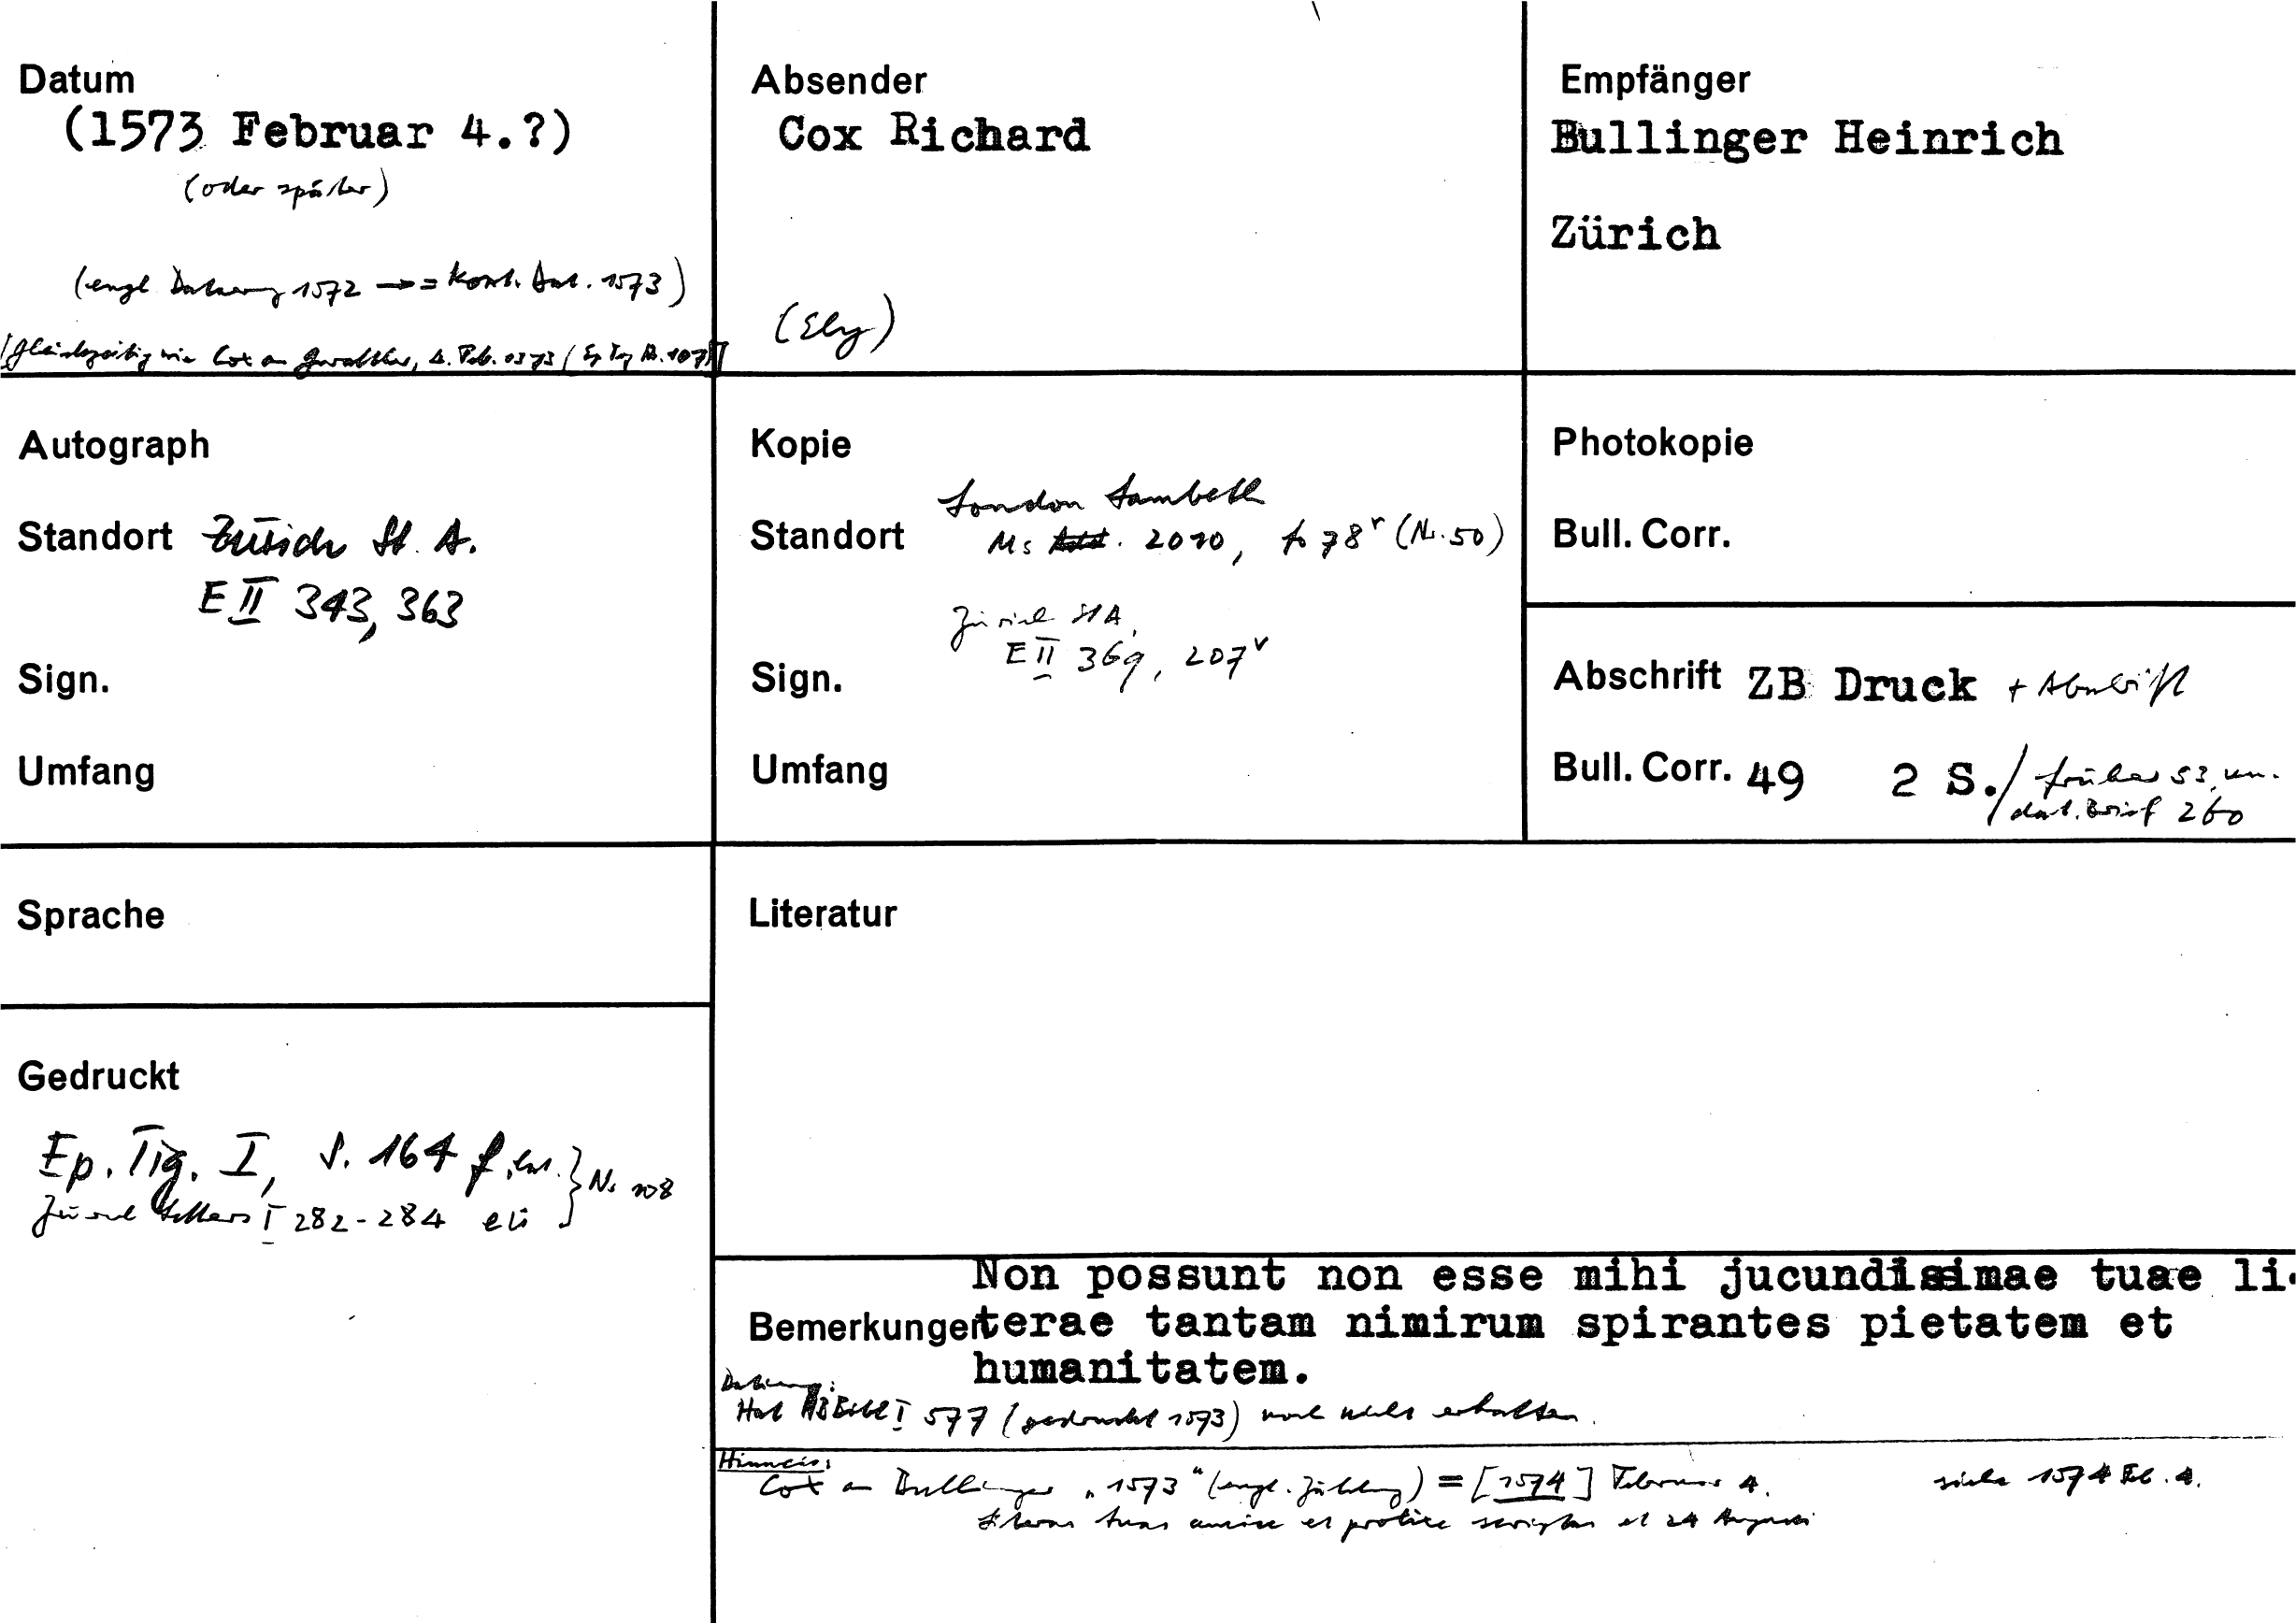 Datum
(1573 Februar 4.?)
(oder später)
(engl Datierung 1572 → = kont. Dat. 1573)
[gleichzeitig wie Cox an Gwalther, 4. Feb. 1573 (Ep Tig Nr. 107)]
Absender
Cox Richard
(Ely)
Empfänger
Bullinger Heinrich
Zürich
Autograph
Standort Zürich St. A.
E II 343, 363
Sign.
Umfang
Kopie
London Lambeth
Standort Ms Add. 2010, fo 78r (Nr. 50)
Zürich StA,
E II 369, 207v
Sign.
Umfang
Photokopie
Bull. Corr.
Abschrift ZB Druck + Abschrift
Bull. Corr. 49 2 S./ früher 53, un.
dat. Brief 260
Sprache
Literatur
Gedruckt
Ep. Tig. I, S. 164 f. lat. } Nr 108
Zürich Letters I 282-284
Non possunt non esse mihi jucundissimae tuae li-
Bemerkungen terae tantam nimirum spirantes pietatem et
humanitatem.
Datierung:
Hat HBBibl I 577 (gedruckt 1573) noch nicht erhalten.
Hinweis:
Cox an Bullinger "1573" (engl. Zählung) = [1574] Februar 4. siehe 1574 Feb. 4.
Literas tuas amice et scriptas et 24 Augusti